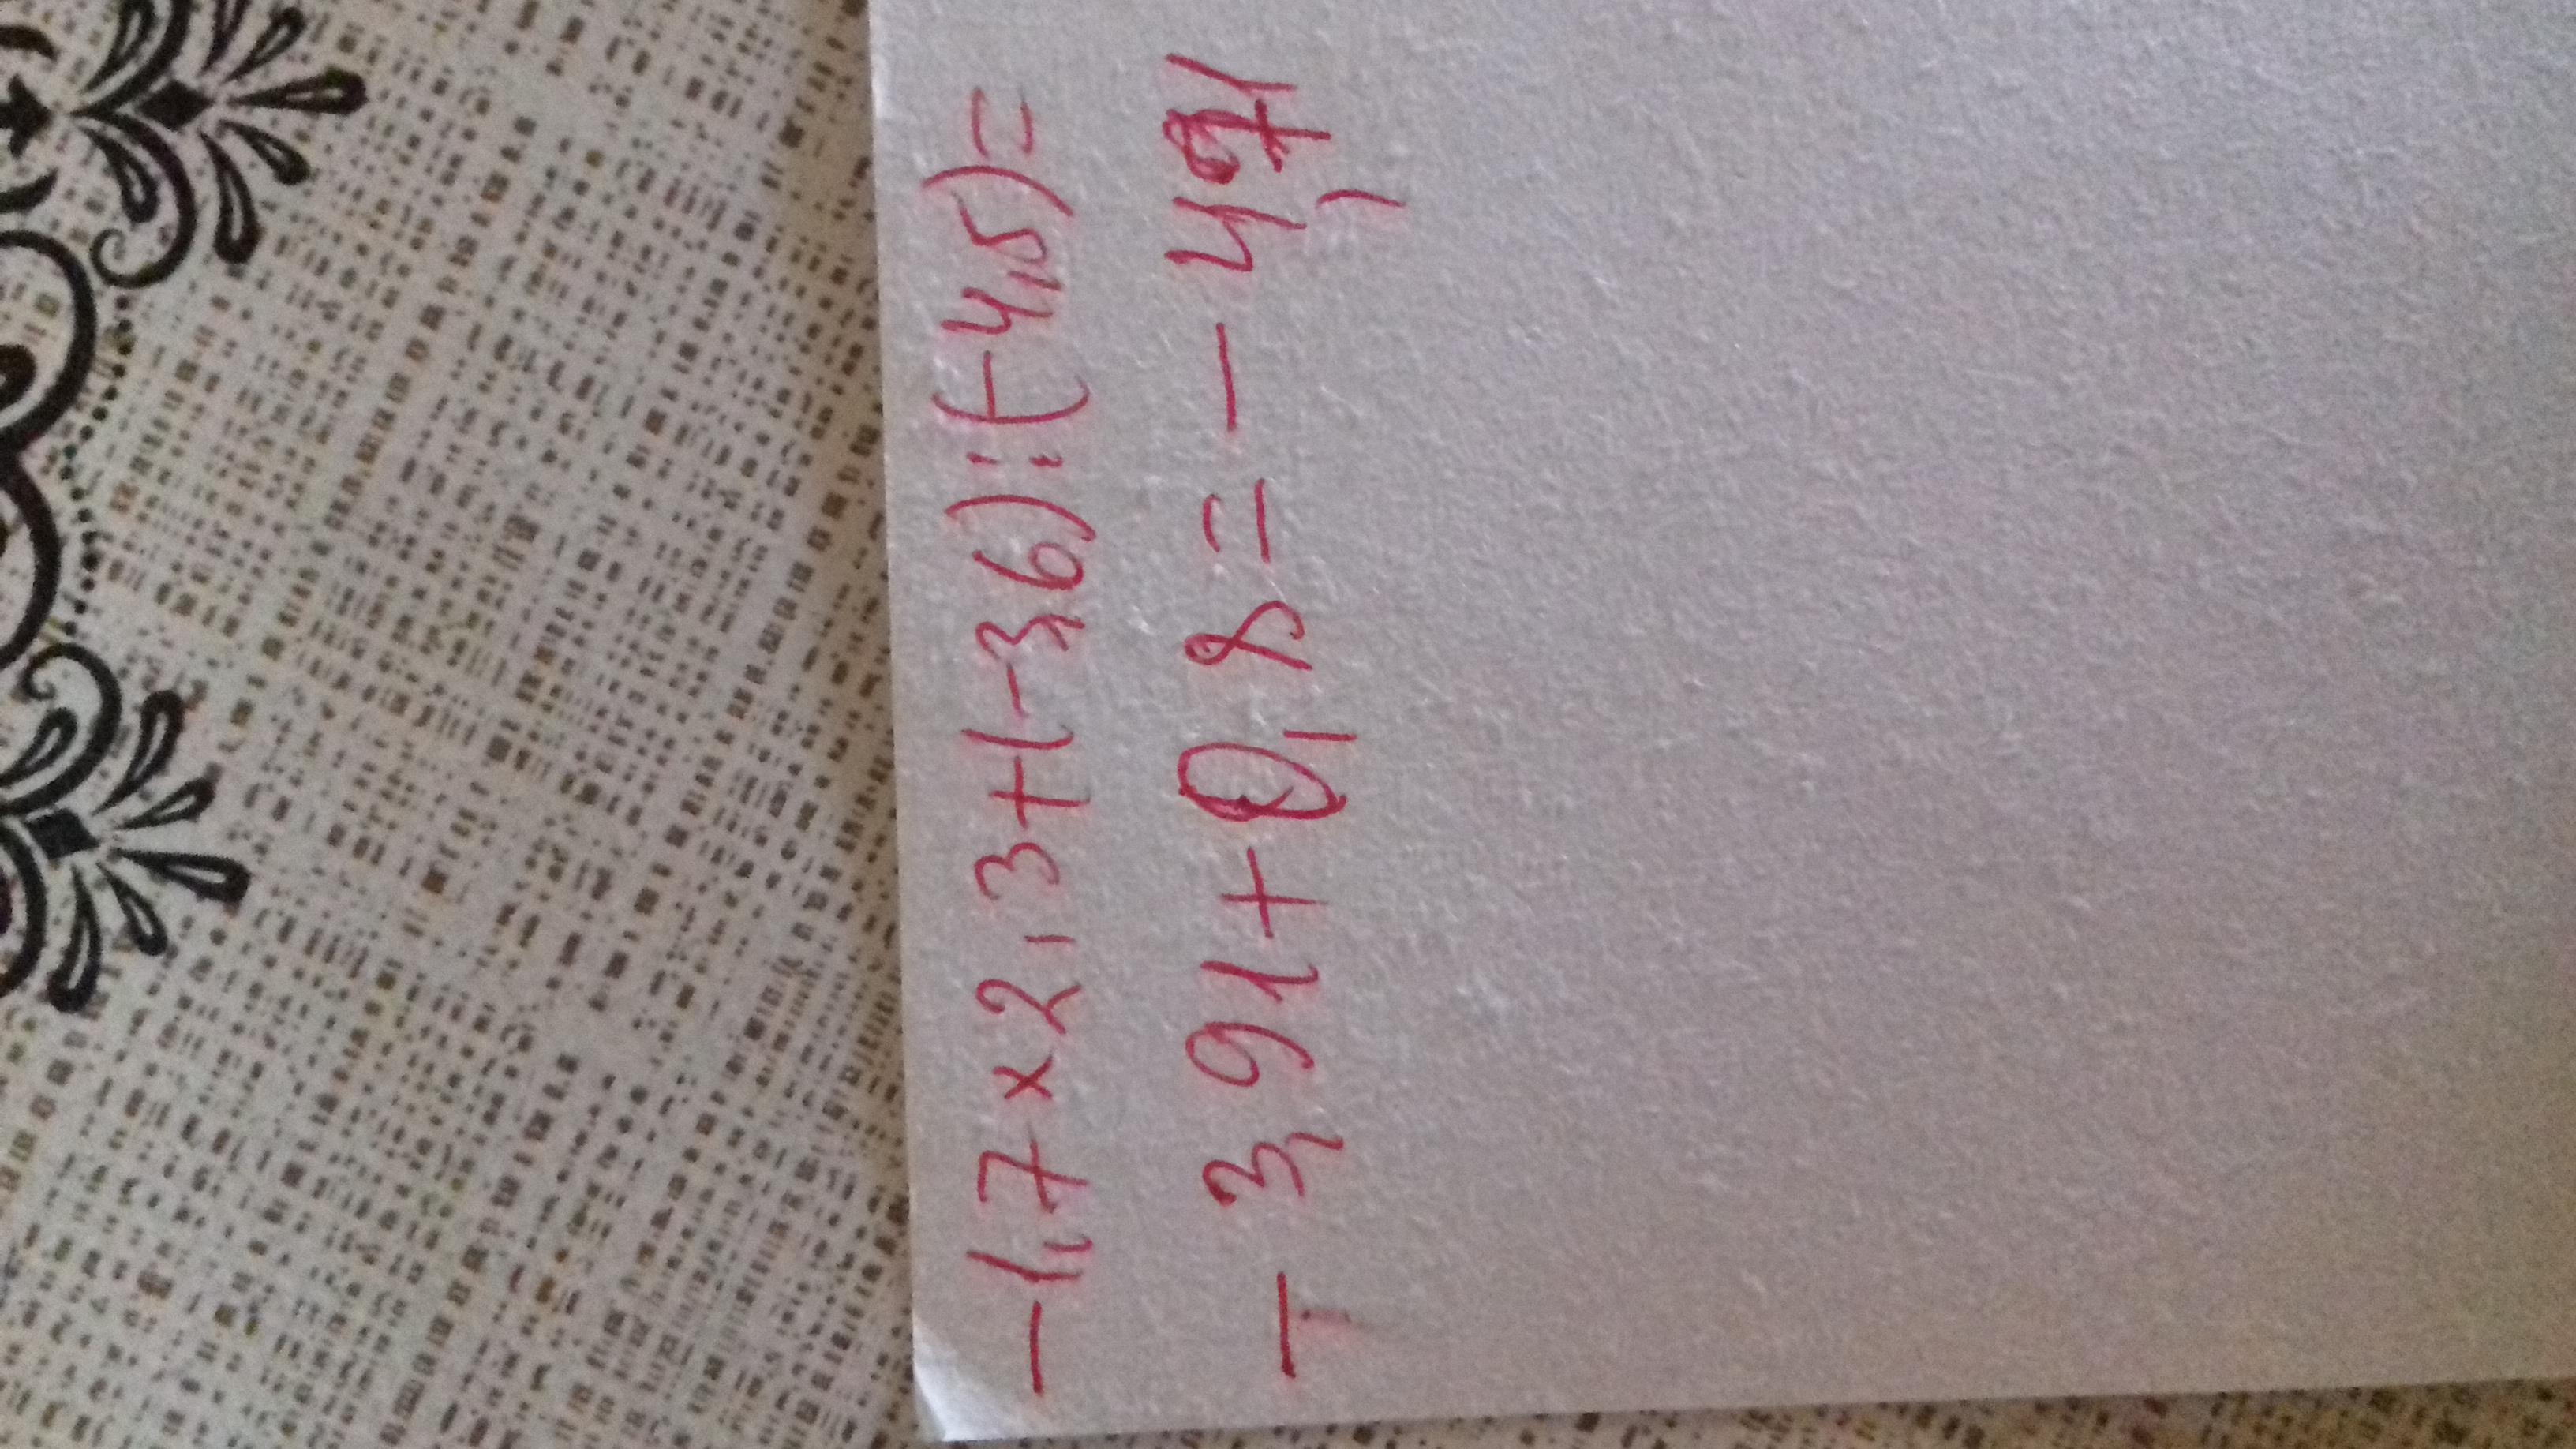 -1,7×2,3+(-3,6):(-4,5)=
-3,91+0,8=-4,71